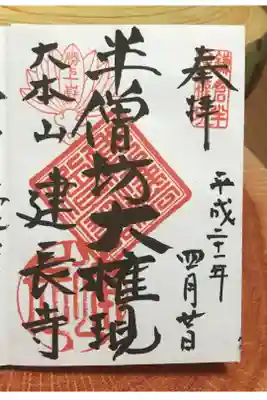 奉拝
平成二十一年
四月廿日
半僧坊大権現
大本山 建長寺